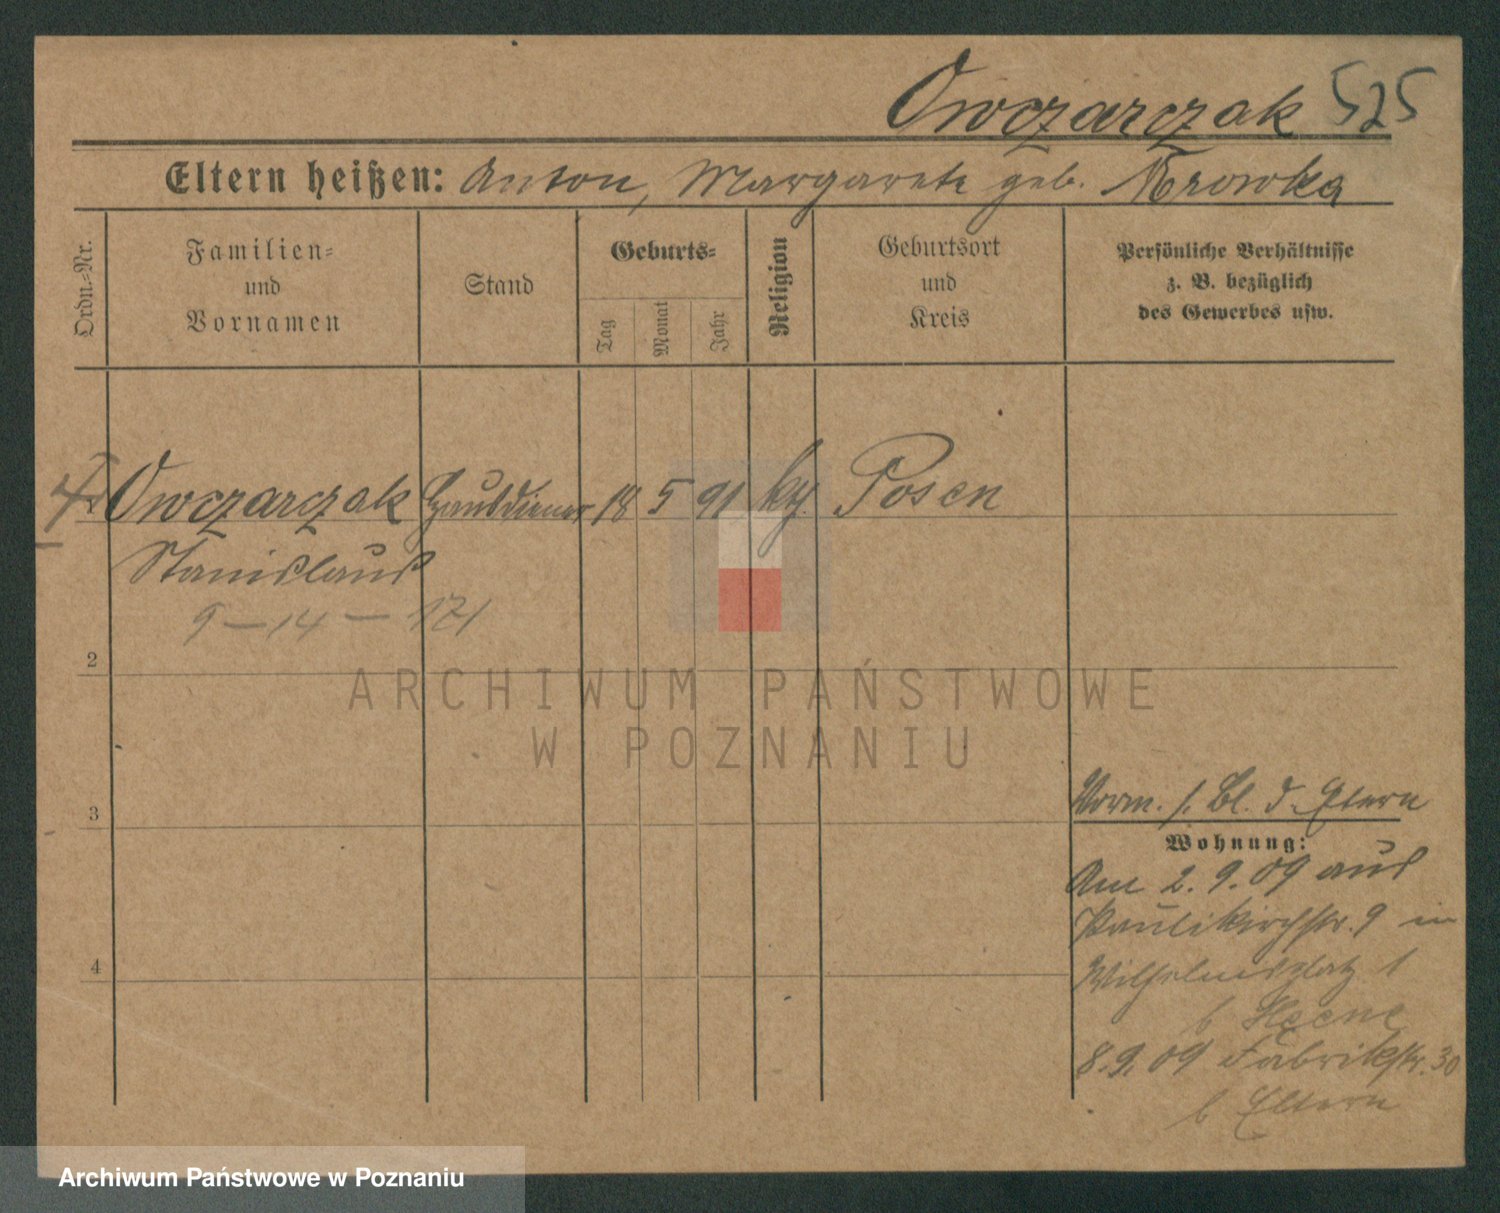 Owczarczak 525
Eltern heißen: Anton, Margarete geb. Mrowka
Ordn.-Nr.
Familien-
und
Vornamen
Stand
Geburts-
Tag
Monat
Jahr
Religion
Geburtsort
und
Kreis
Persönliche Verhältnisse
z. B. bezüglich
des Gewerbes usw.
Owczarczak Hausdiener 18 5 91 Posen
Stanislaus
9 – 14 – 171
2
3
4
Vorm. s. Bl. d. Eltern
Wohnung:
Am 2. 9. 09 aus
Paulikirchstr. 9 in
Wilhelmsplatz 1
b
8. 9. 09 Fabrikstr. 30
b Eltern
ARCHIWUM PAŃSTWOWE
W POZNANIU
Archiwum Państwowe w Poznaniu